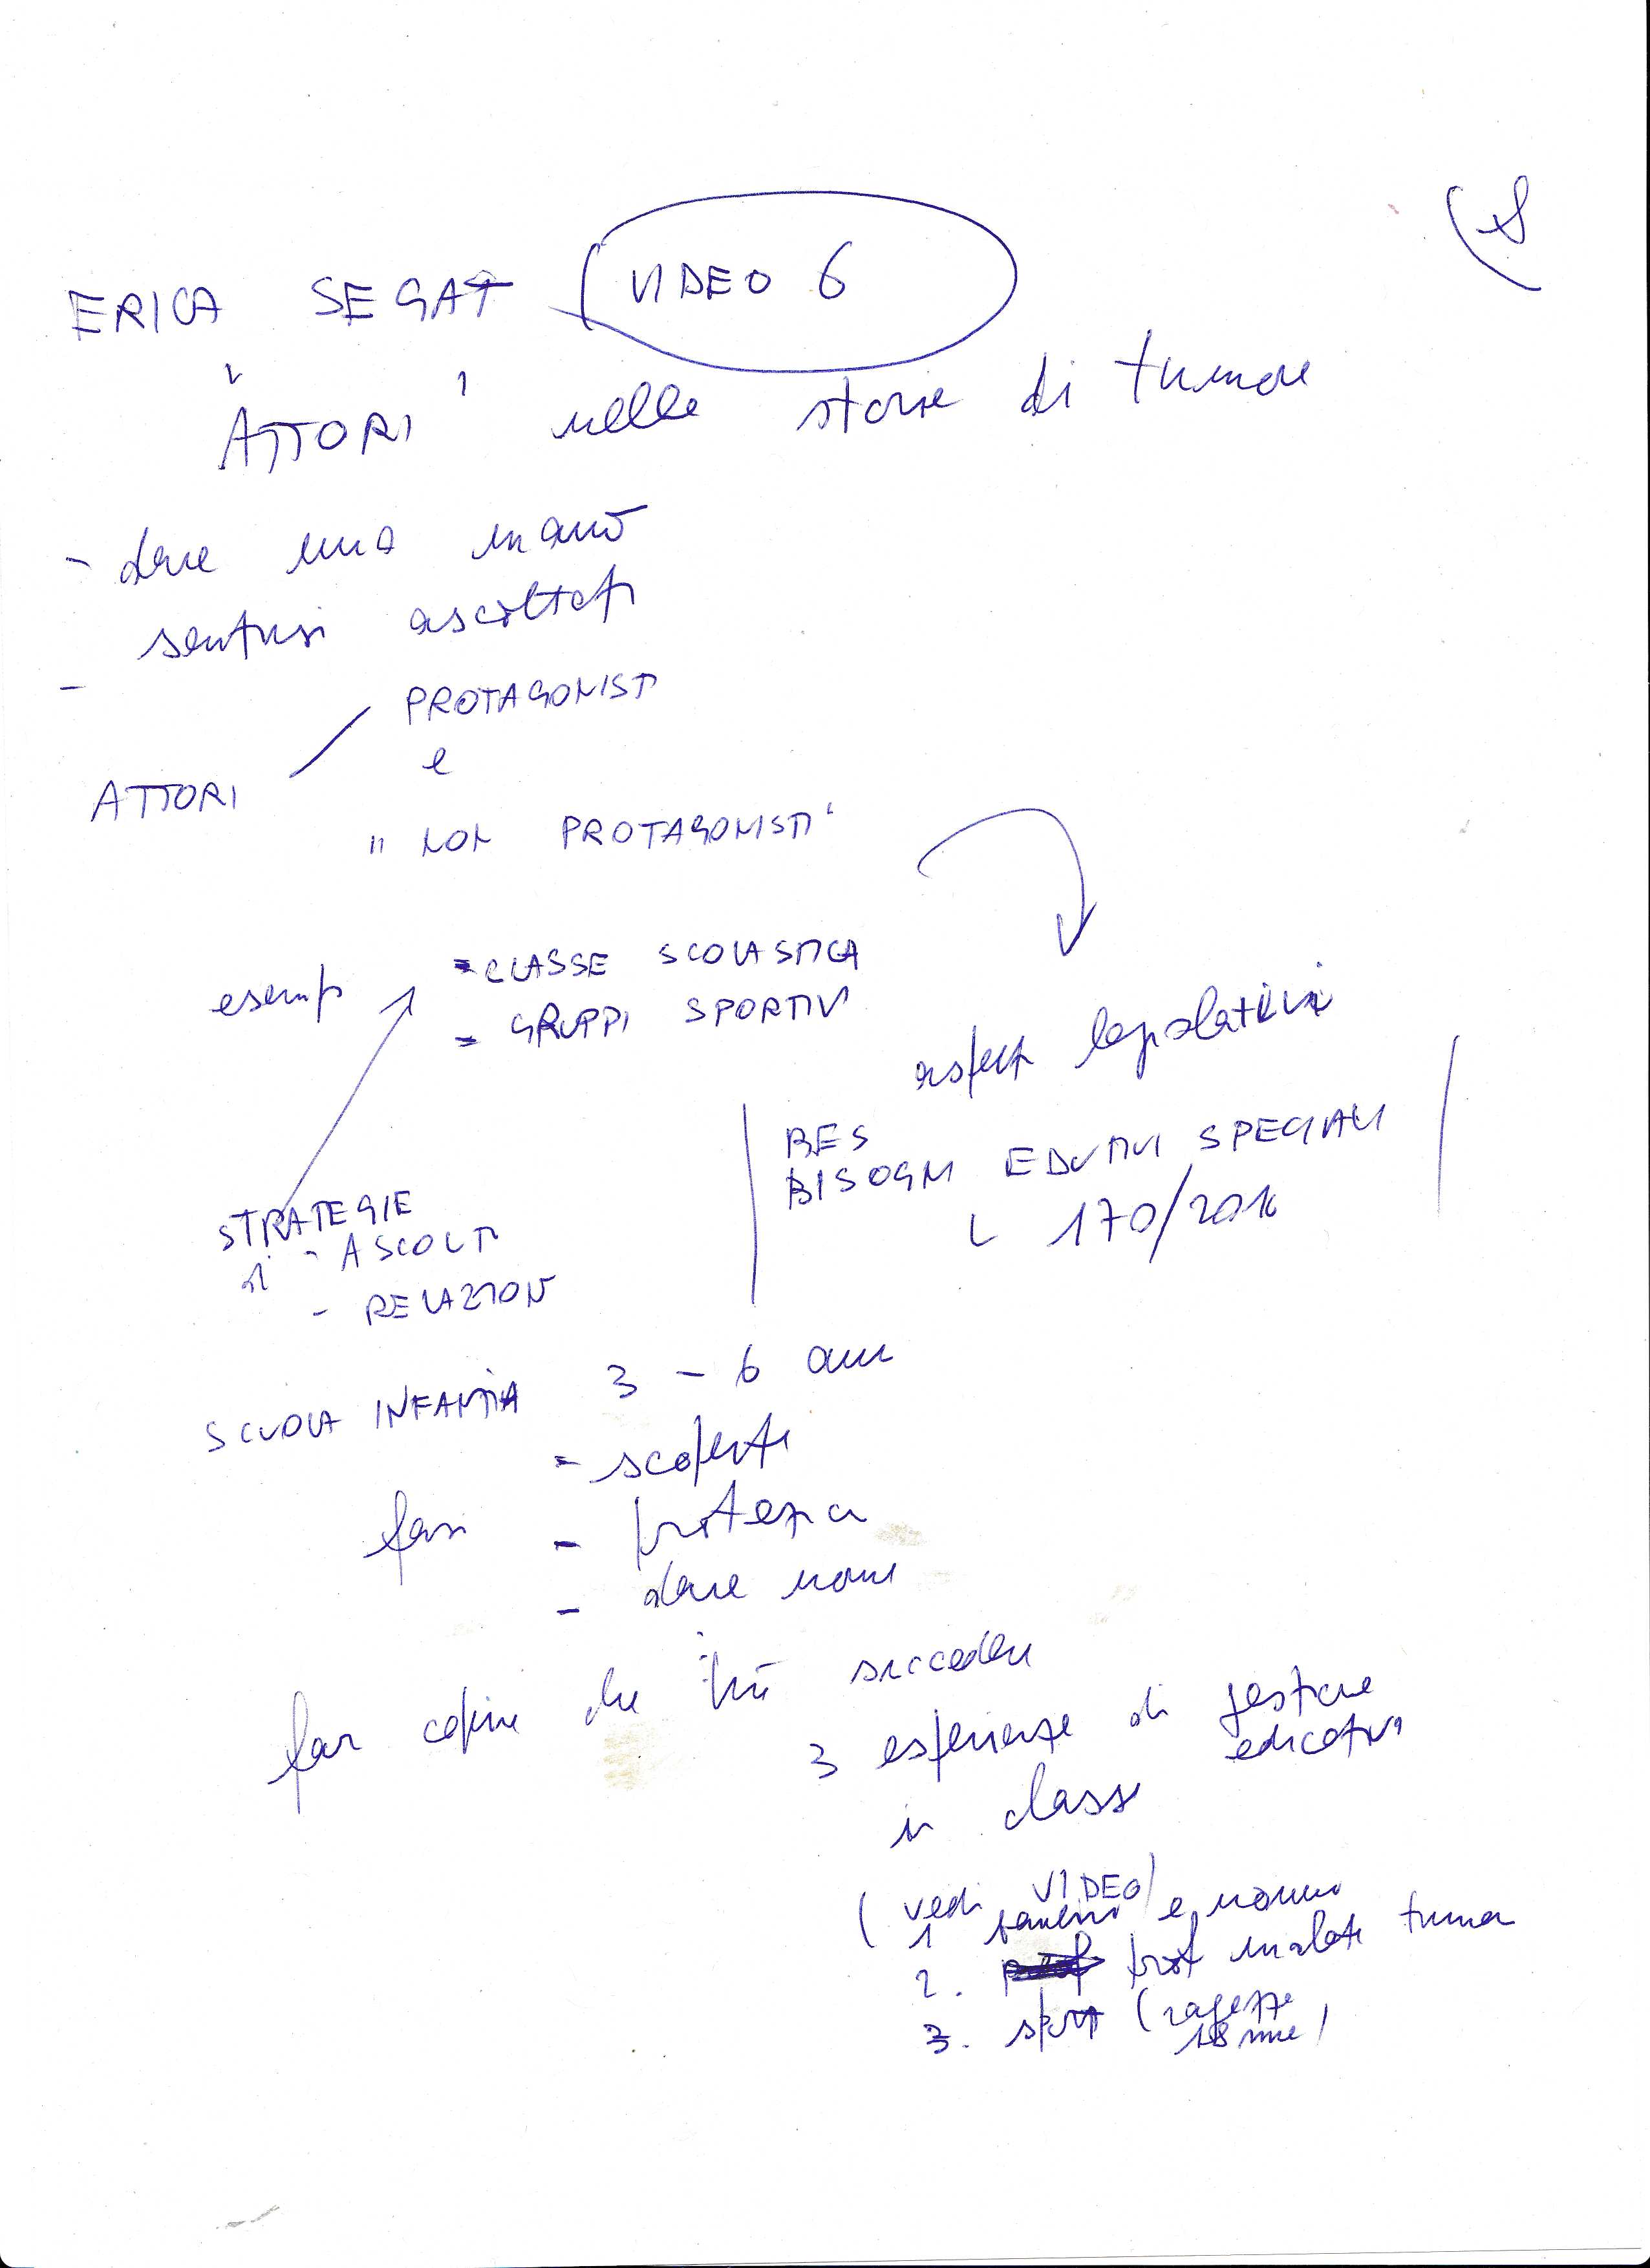 ERICA SEGAT (VIDEO 6
"ATTORI" nelle storie di tumore
- dare una mano
sentirsi ascoltati
-
PROTAGONISTI
e
ATTORI
"NON PROTAGONISTI"
esempi
- CLASSE SCOLASTICA
- GRUPPI SPORTIVI
aspetti legislativi
BES
BISOGNI EDUTIVI SPECIALI
170/2010
STRATEGIE
di - ASCOLTI
- RELAZIONI
SCUOLA INFANZIA 3 - 6 anni
- scoperte
fasi - protezia
- dare nomi
far capire che può succedere
3 esperienze di gestione
educativa
in classe
(vedi VIDEO)
1 e nonno
2. prof malati tumore
3. sport (ragazze
18 nni)